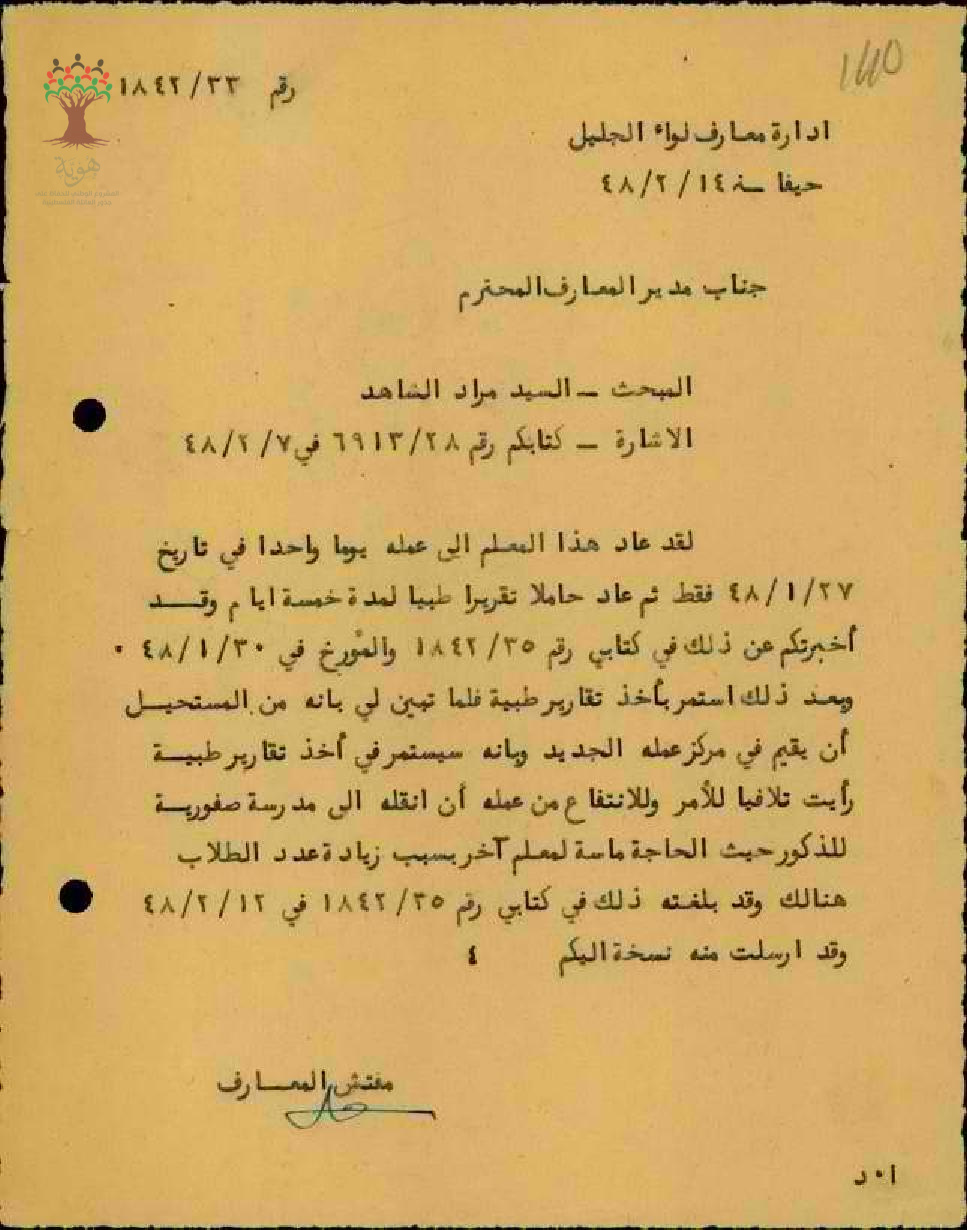 140
رقم ١٨٤٢/٣٣
ادارة معارف لواء الجليل
حيفا سنة ٤٨/٢/١٤
هوية
جناب مدير المعارف المحترم
المبحث ــ السيد مراد الشاهد
الاشارة ــ كتابكم رقم ٦٩١٣/٢٨ في ٤٨/٢/٧
لقد عاد هذا المعلم الى عمله يوما واحدا في تاريخ
٤٨/١/٢٧ فقط ثم عاد حاملا تقريرا طبيا لمدة خمسة ايام وقــد
أخبرتكم عن ذلك في كتابي رقم ١٨٤٢/٣٥ والمؤرخ في ٤٨/١/٣٠ ٠
وبعد ذلك استمر بأخذ تقارير طبية فلما تبين لي بانه من المستحيــل
أن يقيم في مركز عمله الجديد وبانه سيستمر في أخذ تقارير طبيــة
رأيت تلافيا للأمر وللانتفاع من عمله أن انقله الى مدرسة صفوريــة
للذكور حيث الحاجة ماسة لمعلم آخر بسبب زيادة عدد الطلاب
هنالك وقد بلغته ذلك في كتابي رقم ١٨٤٢/٣٥ في ٤٨/٢/١٢
وقد ارسلت منه نسخة اليكم ٤
مفتش المعــارف
ا٠د